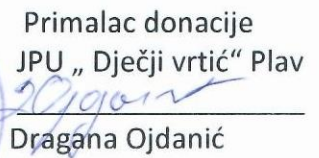 Primalac donacije
JPU „ Dječji vrtić“ Plav
Dragana Ojdanić